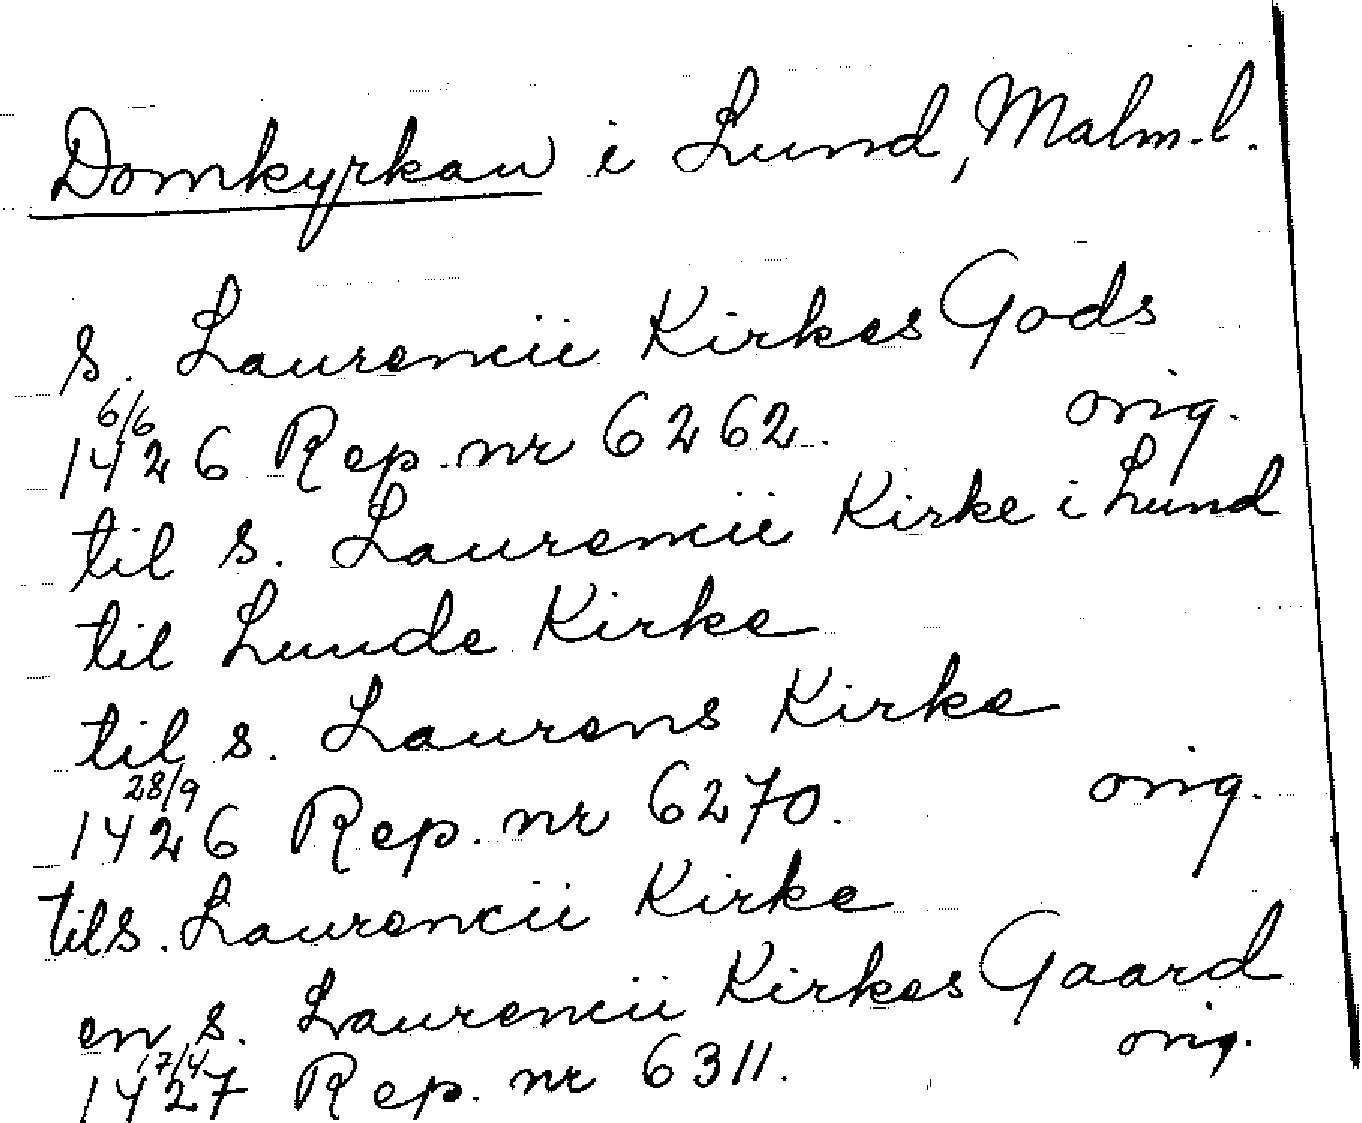 Domkyrkan i Lund, Malm.l.
s. Laurencii Kirkes Gods
1426 6/6 Rep. nr 6262. orig.
til s. Laurencii Kirke i Lund
til Lunde Kirke
til s. Laurens Kirke
1426 28/9 Rep. nr 6270. orig.
til s. Laurencii Kirke
en s. Laurencii Kirkes Gaard
1427 17/4 Rep. nr 6311. orig.